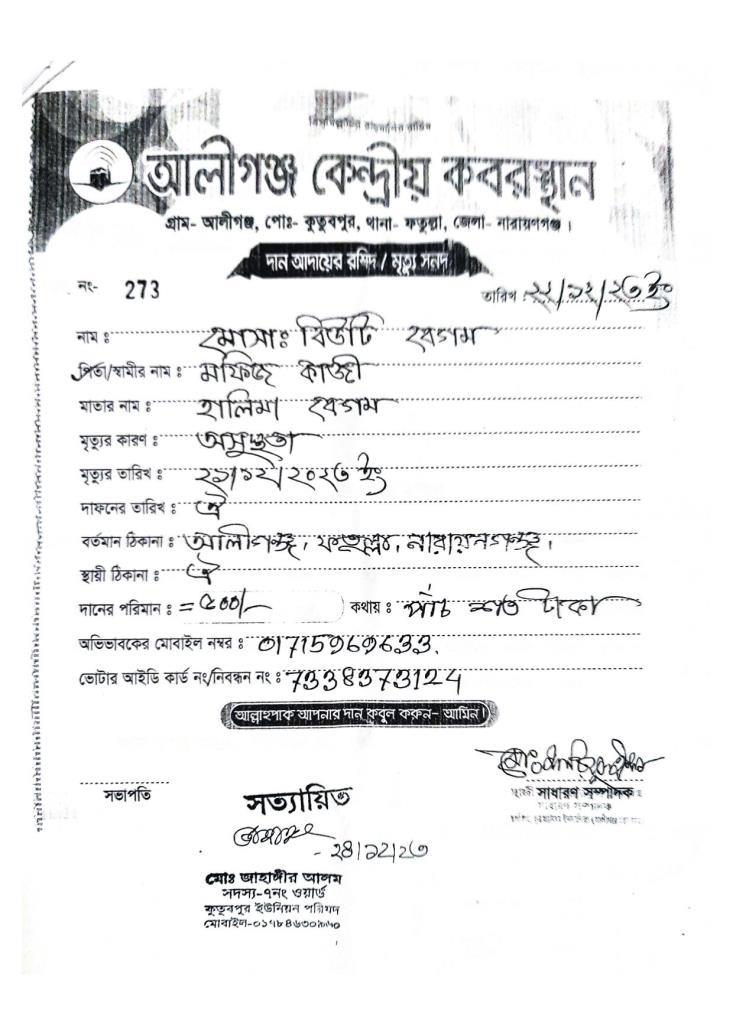 বিসমিল্লাহির রাহমানির রাহিম
আলীগঞ্জ কেন্দ্রীয় কবরস্থান
গ্রাম- আলীগঞ্জ, পোঃ- কুতুবপুর, থানা- ফতুল্লা, জেলা- নারায়ণগঞ্জ।
দান আদায়ের রশিদ / মৃত্যু সনদ
নং- 273
তারিখ : ২২/১২/২৩ ইং
নাম ঃ মোসাঃ বিউটি বেগম
পিতা/স্বামীর নাম ঃ মফিজ কাজী
মাতার নাম ঃ হালিমা বেগম
মৃত্যুর কারণ ঃ অসুস্থতা
মৃত্যুর তারিখ ঃ ২১/১২/২০২৩ ইং
দাফনের তারিখ ঃ ঐ
বর্তমান ঠিকানা ঃ আলীগঞ্জ, ফতুল্লা, নারায়নগঞ্জ।
স্থায়ী ঠিকানা ঃ ঐ
দানের পরিমান ঃ = ৫০০/- কথায় ঃ পাঁচ শত টাকা
অভিভাবকের মোবাইল নম্বর ঃ 01715969633.
ভোটার আইডি কার্ড নং/নিবন্ধন নং ঃ 7338373124
আল্লাহপাক আপনার দান কবুল করুন- আমিন।
সভাপতি
সাধারণ সম্পাদক
সত্যায়িত
২৪/১২/২৩
মোঃ জাহাঙ্গীর আলম
সদস্য-৭নং ওয়ার্ড
কুতুবপুর ইউনিয়ন পরিষদ
মোবাইল-